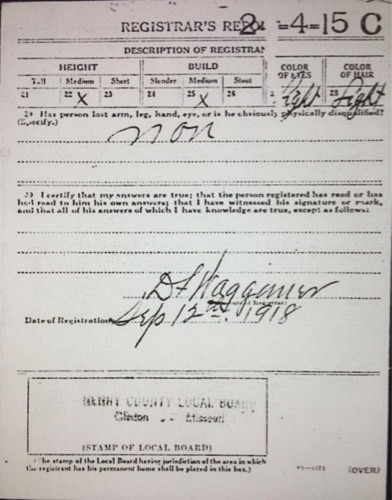 REGISTRAR'S 2-=4=15 C
DESCRIPTION OF REGISTRANT
HEIGHT BUILD COLOR OF EYES COLOR OF HAIR
Tall Medium Short Slender Medium Stout
21 22 X 23 24 25 X 26 Light 28 Light
29 Has person lost arm, leg, hand, eye, or is he obviously physically disqualified?
(Specify.)
non
I certify that my answers are true; that the person registered has read or has
had read to him his own answers; that I have witnessed his signature or mark,
and that all of his answers of which I have knowledge are true, except as follows:
D F Waggener
Date of Registration Sep 12 1918
HENRY COUNTY LOCAL BOARD
Clinton -- Missouri
(STAMP OF LOCAL BOARD)
(The stamp of the Local Board having jurisdiction of the area in which
the registrant has his permanent home shall be placed in this box.)
(OVER)